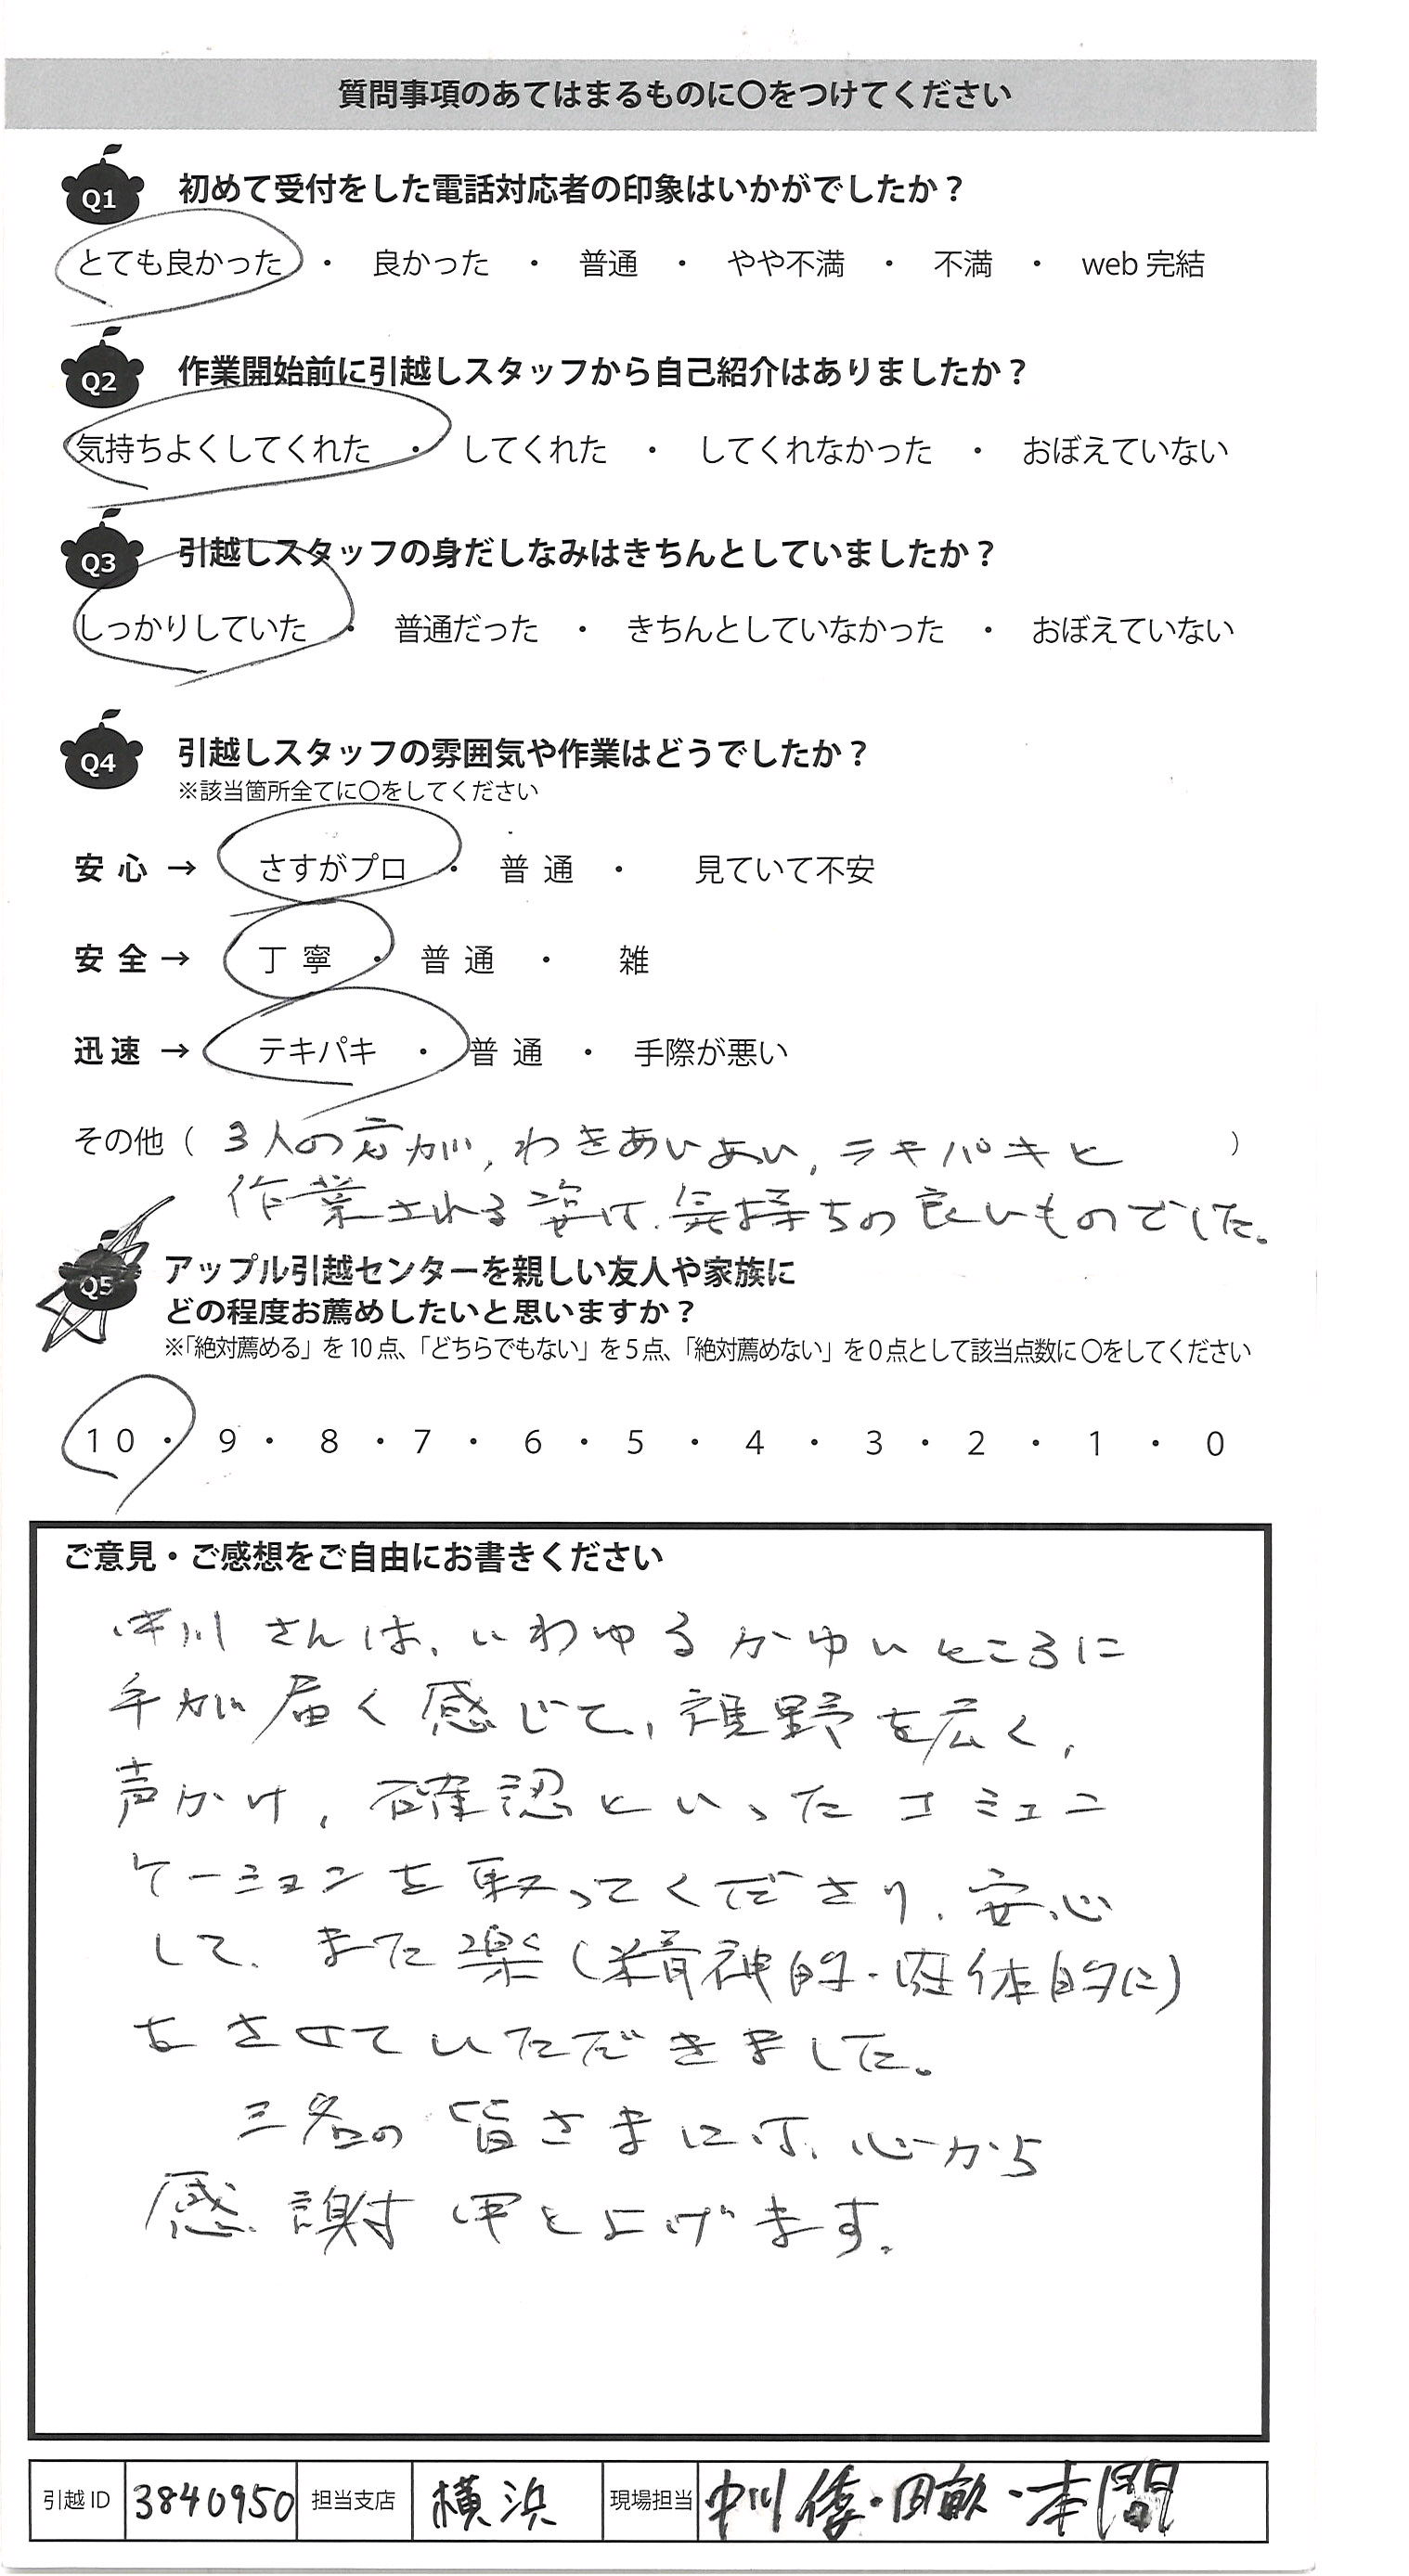 質問事項のあてはまるものに〇をつけてください
Q1 初めて受付をした電話対応者の印象はいかがでしたか？
とても良かった ・ 良かった ・ 普通 ・ やや不満 ・ 不満 ・ web 完結
Q2 作業開始前に引越しスタッフから自己紹介はありましたか？
気持ちよくしてくれた ・ してくれた ・ してくれなかった ・ おぼえていない
Q3 引越しスタッフの身だしなみはきちんとしていましたか？
しっかりしていた ・ 普通だった ・ きちんとしていなかった ・ おぼえていない
Q4 引越しスタッフの雰囲気や作業はどうでしたか？
※該当箇所全てに〇をしてください
安心 → さすがプロ ・ 普通 ・ 見ていて不安
安全 → 丁寧 ・ 普通 ・ 雑
迅速 → テキパキ ・ 普通 ・ 手際が悪い
その他（ 3人の方が、わきあいあい、テキパキと ）
作業される姿は、気持ちの良いものでした。
Q5 アップル引越センターを親しい友人や家族に
どの程度お薦めしたいと思いますか？
※「絶対薦める」を10点、「どちらでもない」を5点、「絶対薦めない」を0点として該当点数に〇をしてください
10 ・ 9 ・ 8 ・ 7 ・ 6 ・ 5 ・ 4 ・ 3 ・ 2 ・ 1 ・ 0
ご意見・ご感想をご自由にお書きください
中川さんは、いわゆるかゆいところに
手が届く感じで、視野を広く、
声かけ、確認といったコミュニ
ケーションを取ってくださり、安心
して、また楽（精神的・肉体的に）
をさせていただきました。
三名の皆さまには、心から
感謝申し上げます。
引越ID 3840950 担当支店 横浜 現場担当 中川 ・田畝・本間